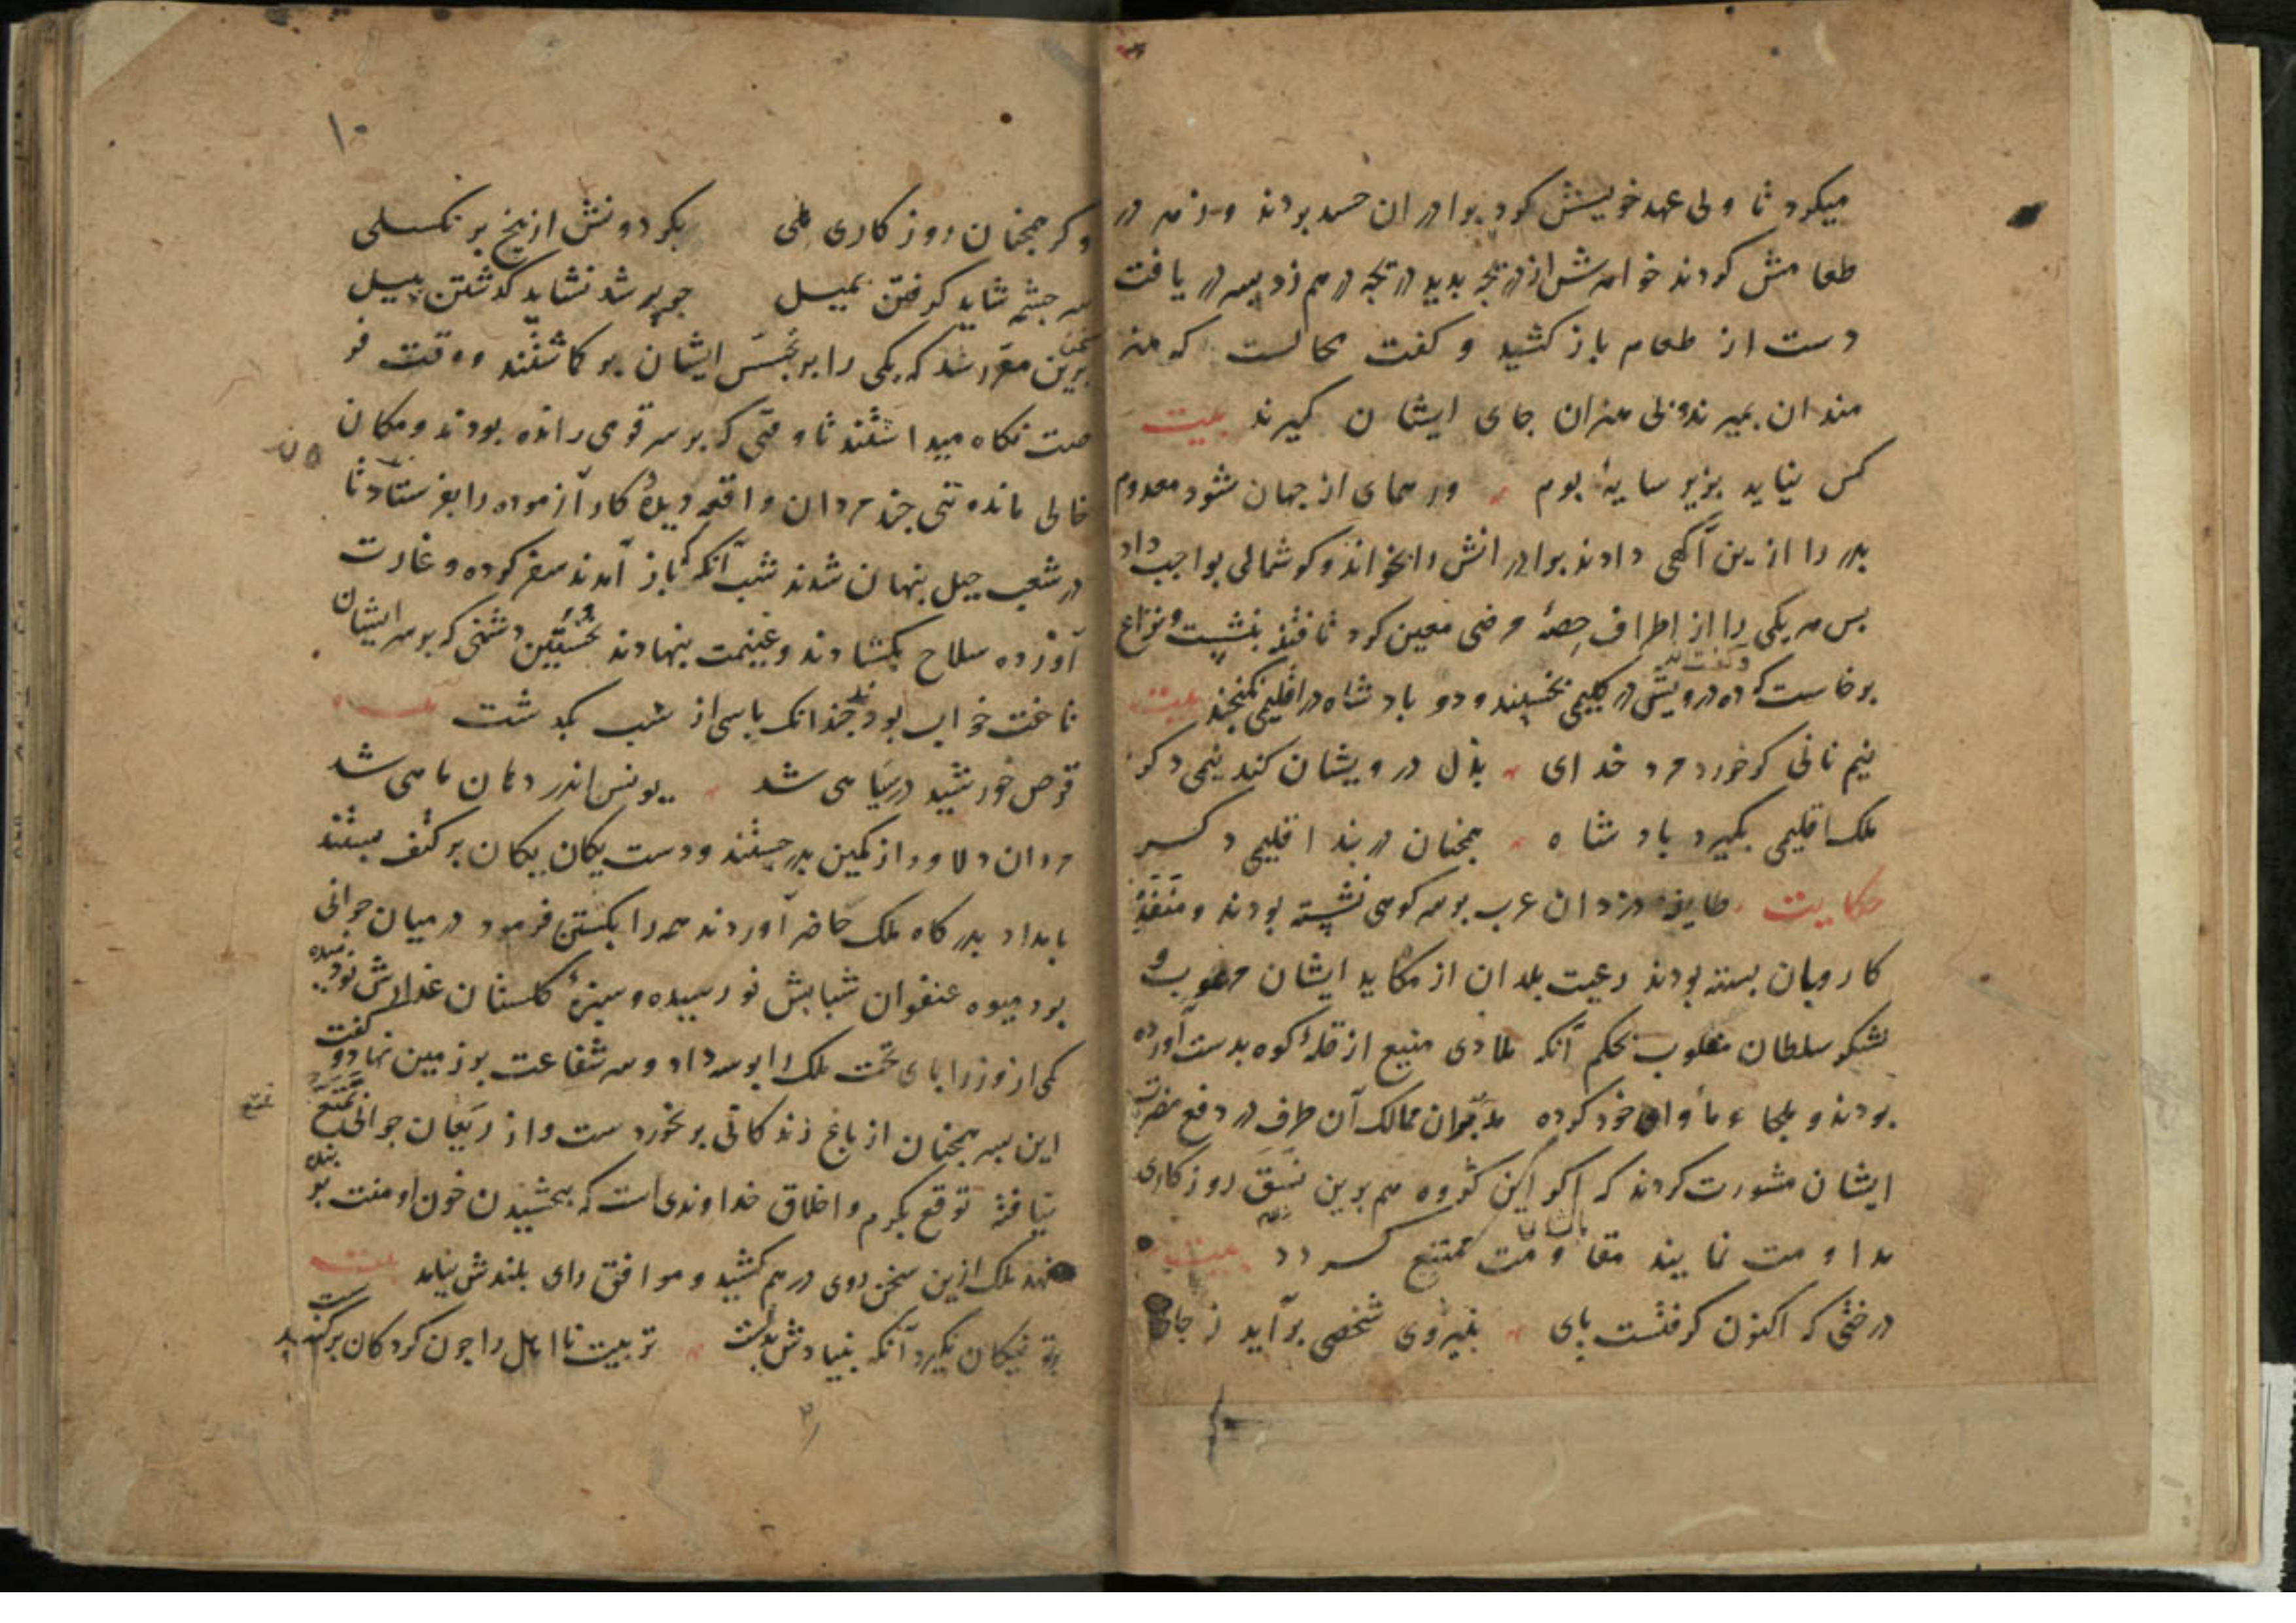 میکرد تا ولی عهد خویش کرد برادران حسد بردند و زهر در
طعامش کردند خواهرش از دریچه بدید دریچه درهم زد پسر دریافت
دست از طعام باز کشید و گفت محالست که هنر
مندان بمیرند و بی هنران جای ایشان گیرند بیت
کس نیاید بزیر سایهٔ بوم ور همای از جهان شود معدوم
پدر را ازین آگهی دادند برادرانش را بخواند و گوشمالی بواجب داد
پس هر یکی را از اطراف حصهٔ مرضی معین کرد تا فتنه بنشست و نزاع
برخاست که ده درویش در گلیمی بخسپند و دو پادشاه در اقلیمی نگنجند بیت
نیم نانی گر خورد مرد خدای بذل درویشان کند نیمی دگر
ملک اقلیمی بگیرد پادشاه همچنان در بند اقلیمی دگر
حکایت طایفه دزدان عرب بر سر کوهی نشسته بودند و منفذ
کاروان بسته بودند رعیت بلدان از مکاید ایشان مرعوب و
لشکر سلطان مغلوب بحکم آنکه ملاذی منیع از قلهٔ کوه بدست آورده
بودند و ملجاء و مأوای خود کرده مدبران ممالک آن طرف در دفع مضرت
ایشان مشورت کردند که اگر این گروه هم برین نسق روزگاری
مداومت نمایند مقاومت باایشان ممتنع گردد بیت
درختی که اکنون گرفتست پای بنیروی شخصی برآید ز جای
۱۰
وگر همچنان روزگاری هلی بگردونش از بیخ بر نگسلی
سر چشمه شاید گرفتن بمیل چو پر شد نشاید گذشتن بپیل
سخن برین مقرر شد که یکی را بر تجسس ایشان برگماشتند و وقت فر
صت نگاه میداشتند تا وقتی که بر سر قومی رانده بودند و مکان
خالی مانده تنی چند مردان واقعه دیدهٔ کار آزموده را بفرستادند تا
در شعب جبل پنهان شدند شب آنگه که باز آمدند سفر کرده و غارت
آورده سلاح بگشادند و غنیمت بنهادند نخستین دشمنی که بر سر ایشان
تاخت خواب بود چندانک پاسی از شب بگذشت بیت
قرص خورشید در سیاهی شد یونس اندر دهان ماهی شد
مردان دلاور از کمین بدر جستند و دست یکان یکان بر کتف بستند
بامداد بدرگاه ملک حاضر آوردند همه را بکشتن فرمود در میان جوانی
بود میوه عنفوان شبابش نو رسیده و سبزهٔ گلستان عذارش نو دمیده
یکی از وزرا پای تخت ملک را بوسه داد و سر شفاعت بر زمین نهاد و گفت
این پسر همچنان از باغ زندگانی بر نخوردست و از ریعان جوانی تمتع
نیافته توقع بکرم و اخلاق خداوندی است که ببخشیدن خون او منت بر بنده
نهد ملک ازین سخن روی درهم کشید و موافق رای بلندش نیامد بیت
پرتو نیکان نگیرد آنکه بنیادش بدست تربیت نااهل را چون گردکان بر گنبدست